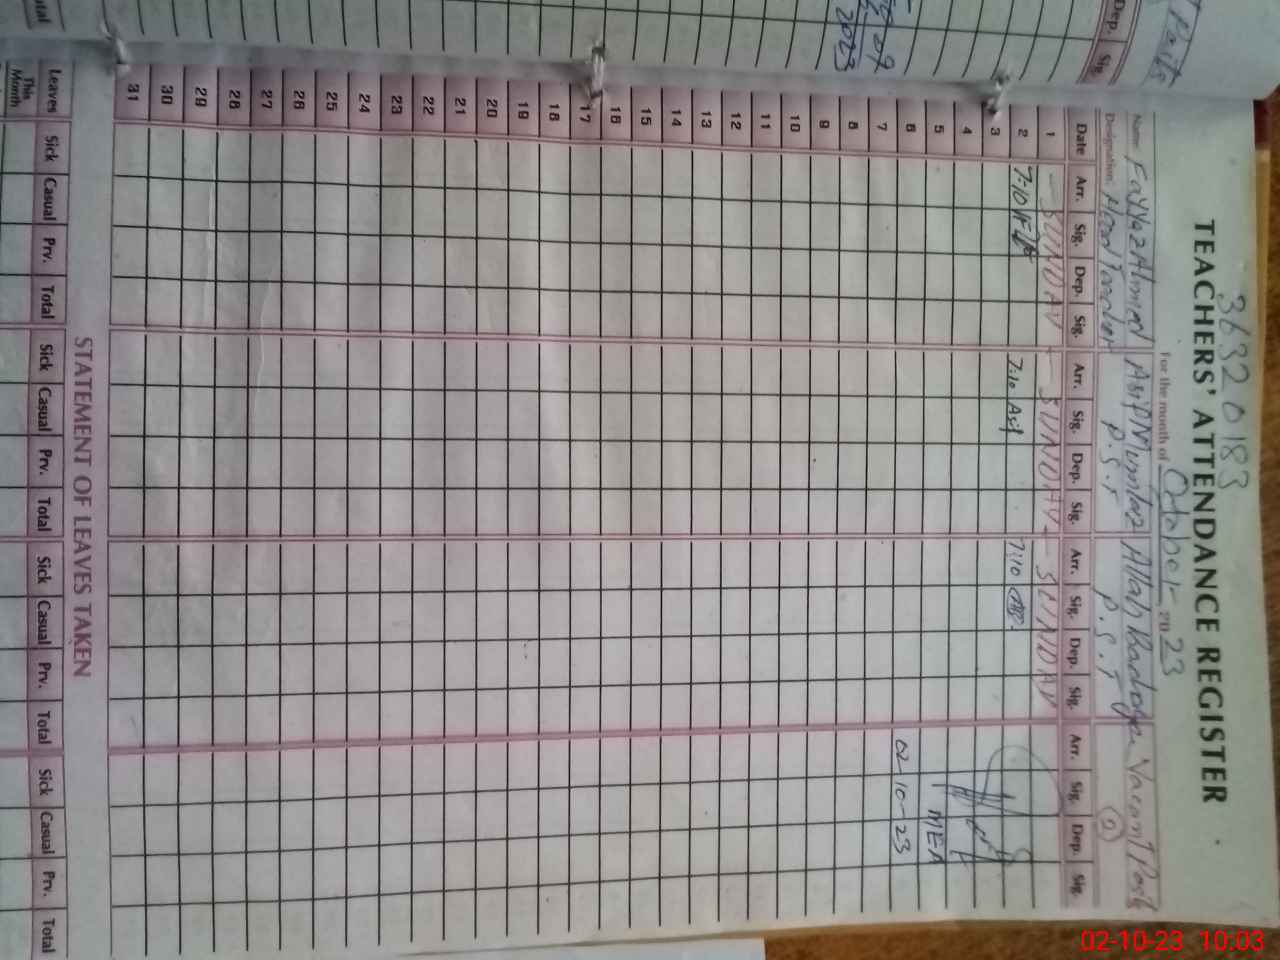 36320183
TEACHERS' ATTENDANCE REGISTER
For the month of October 2023
Name Fayyaz Ahmed Asif Mumtaz Allah Vacant Post
Designation: Head Teacher P.S.T P.S.T
Date Arr. Sig. Dep. Sig. Arr. Sig. Dep. Sig. Arr. Sig. Dep. Sig. Arr. Sig. Dep. Sig.
1 - SUNDAY - - SUNDAY - - SUNDAY
2 7:10 7:10 Asif 7:10
3
4
5 MEA
6 02-10-23
7
8
9
10
11
12
13
14
15
16
17
18
19
20
21
22
23
24
25
26
27
28
29
30
31
STATEMENT OF LEAVES TAKEN
Leaves Sick Casual Prv. Total Sick Casual Prv. Total Sick Casual Prv. Total Sick Casual Prv. Total
This
Month
Dep. Sig.
2023
02-10-23 10:03